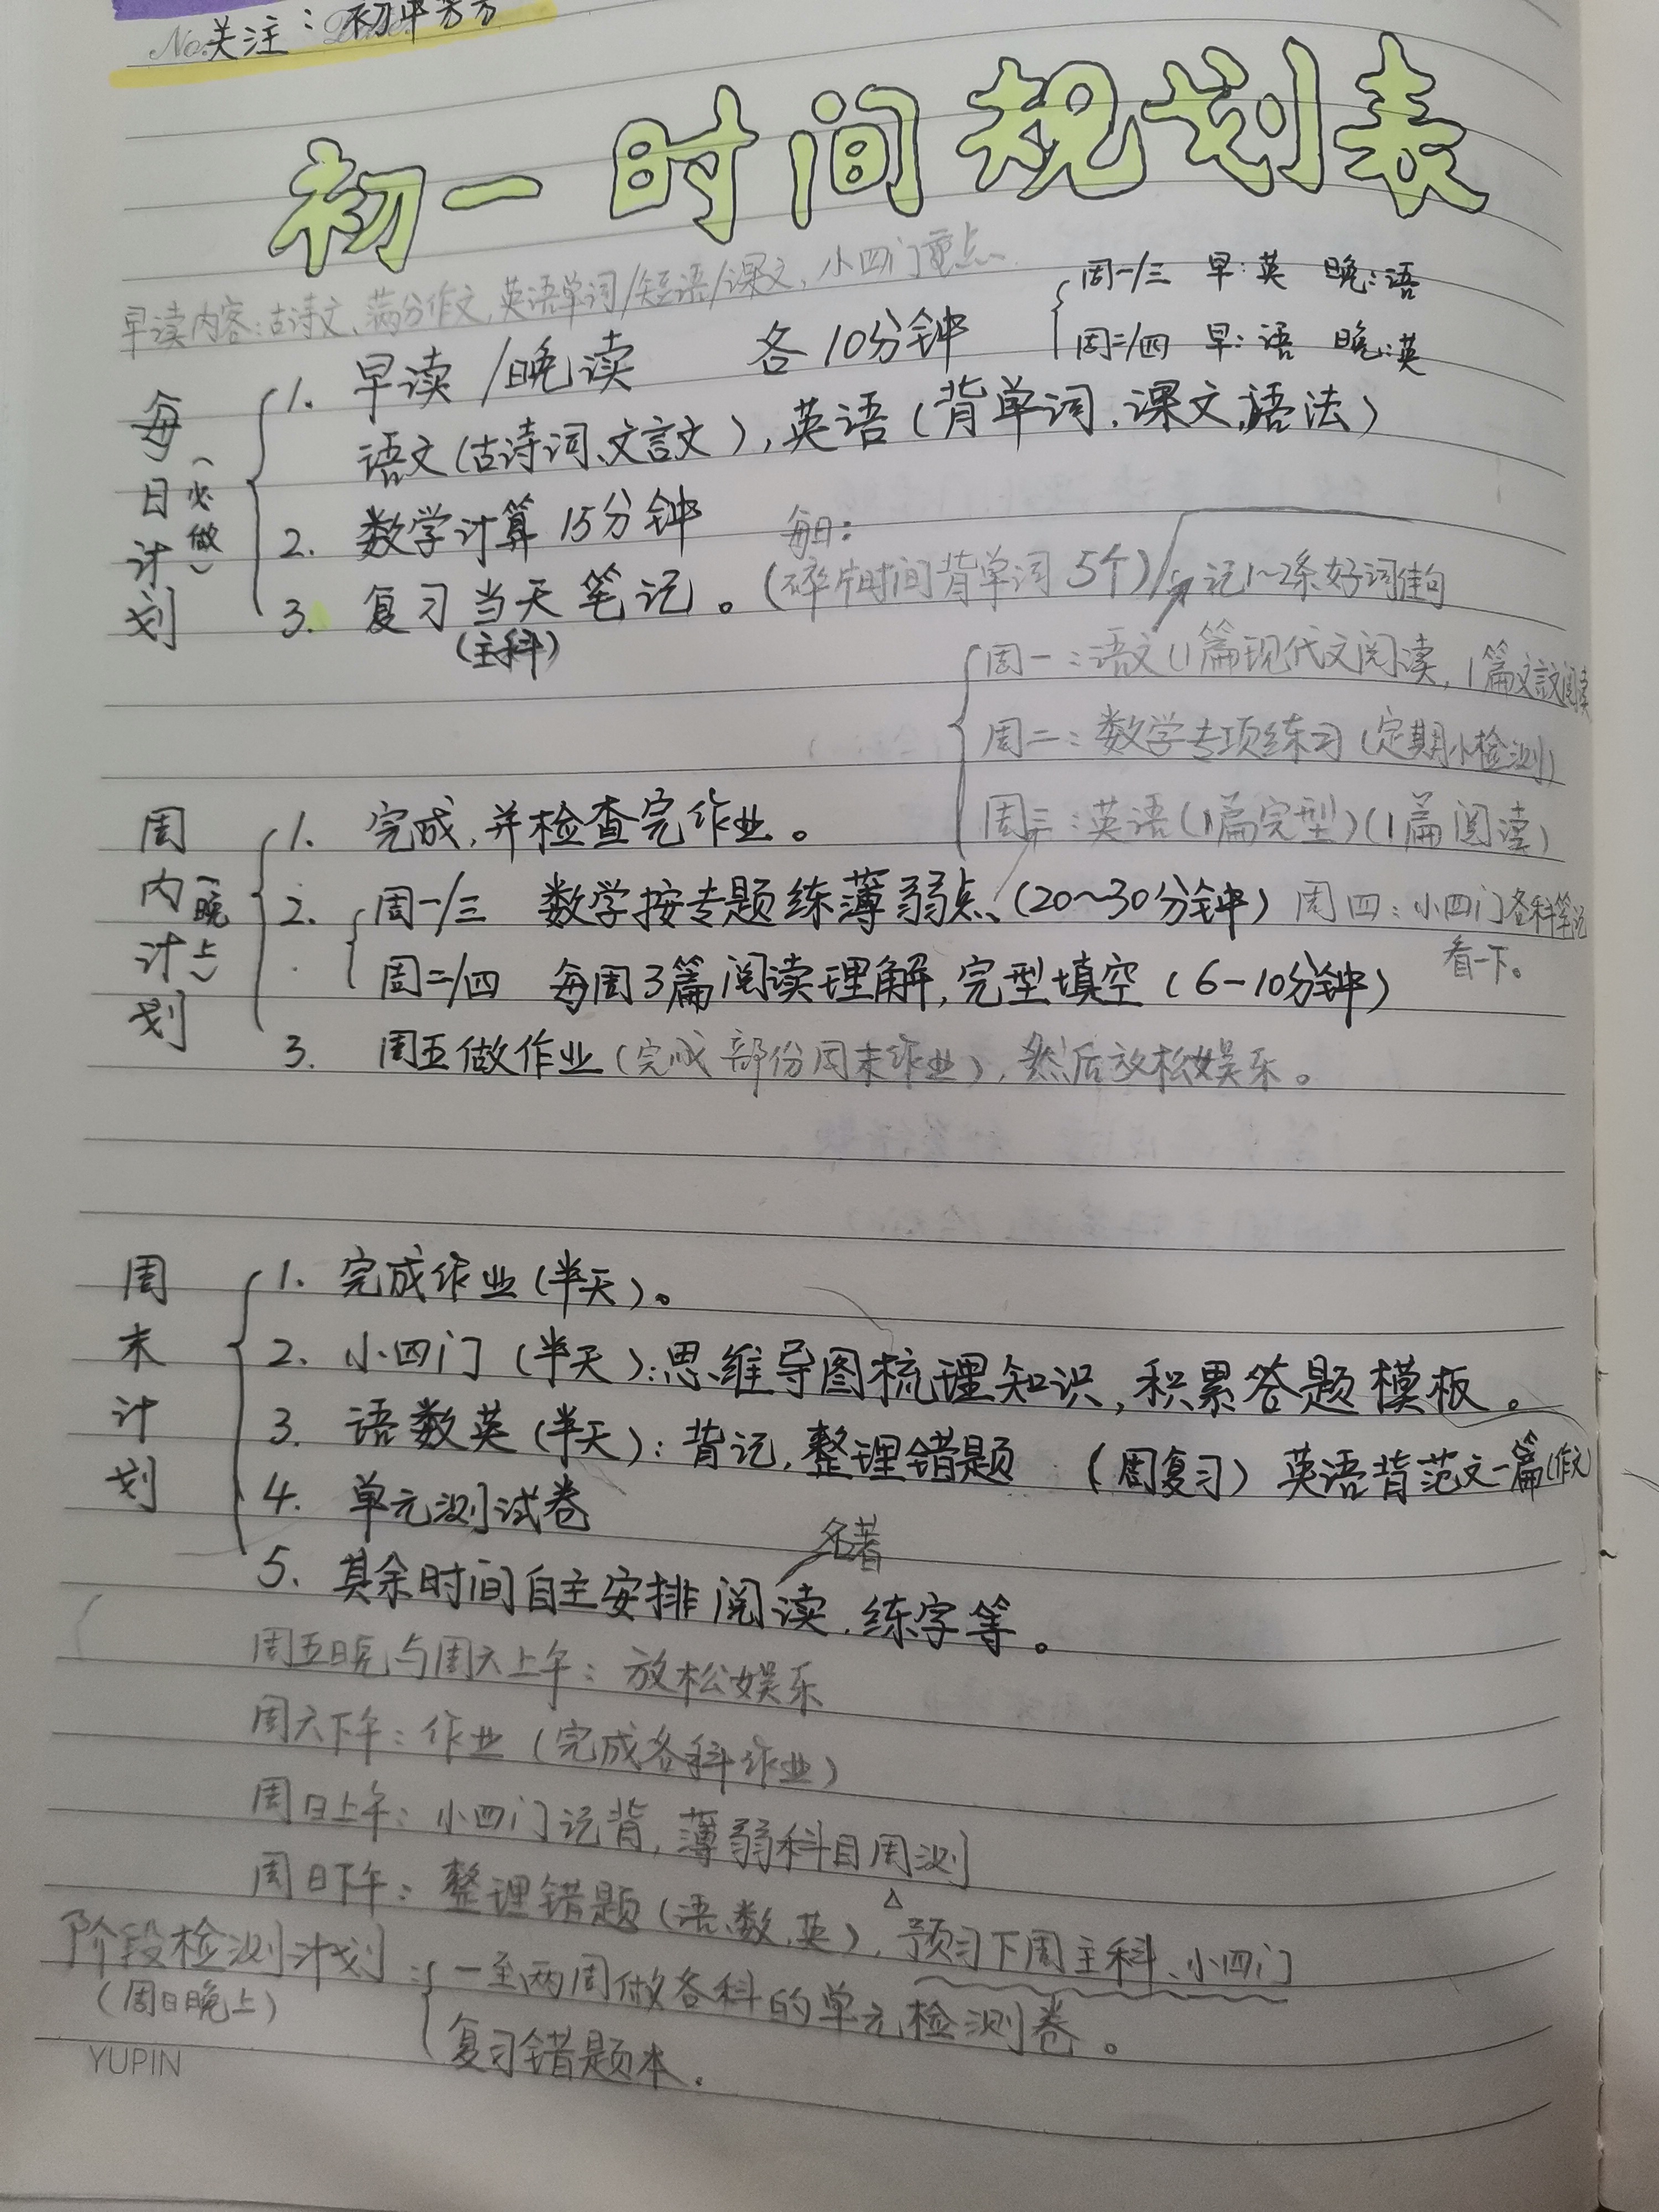 No. 关注：初中芳芳
初一时间规划表
早读内容：古诗文、满分作文，英语单词/短语/课文，小四门重点、
周一/三 早：英 晚：语
周二/四 早：语 晚：英
每日计划（必做）
1. 早读/晚读 各10分钟
语文（古诗词、文言文），英语（背单词，课文，语法）
2. 数学计算15分钟
3. 复习当天笔记。（主科）
每日：
（碎片时间背单词5个）/记1~2条好词佳句
周一：语文（1篇现代文阅读，1篇文言文阅读
周二：数学专项练习（定期小检测）
周三：英语（1篇完型）（1篇阅读）
周四：小四门各科笔记
看一下。
周内计划（晚上）
1. 完成，并检查完作业。
2. 周一/三 数学按专题练薄弱点（20~30分钟）
周二/四 每周3篇阅读理解，完型填空（6-10分钟）
3. 周五做作业（完成部份周末作业），然后放松娱乐。
周末计划
1. 完成作业（半天）。
2. 小四门（半天）：思维导图梳理知识，积累答题模板。
3. 语数英（半天）：背记，整理错题（周复习）英语背范文一篇（作文）
4. 单元测试卷
名著
5. 其余时间自主安排阅读，练字等。
周五晚与周六上午：放松娱乐
周六下午：作业（完成各科作业）
周日上午：小四门记背，薄弱科目周测
周日下午：整理错题（语、数、英），预习下周主科、小四门
阶段检测计划：
（周日晚上）
一至两周做各科的单元检测卷。
复习错题本.
YUPIN